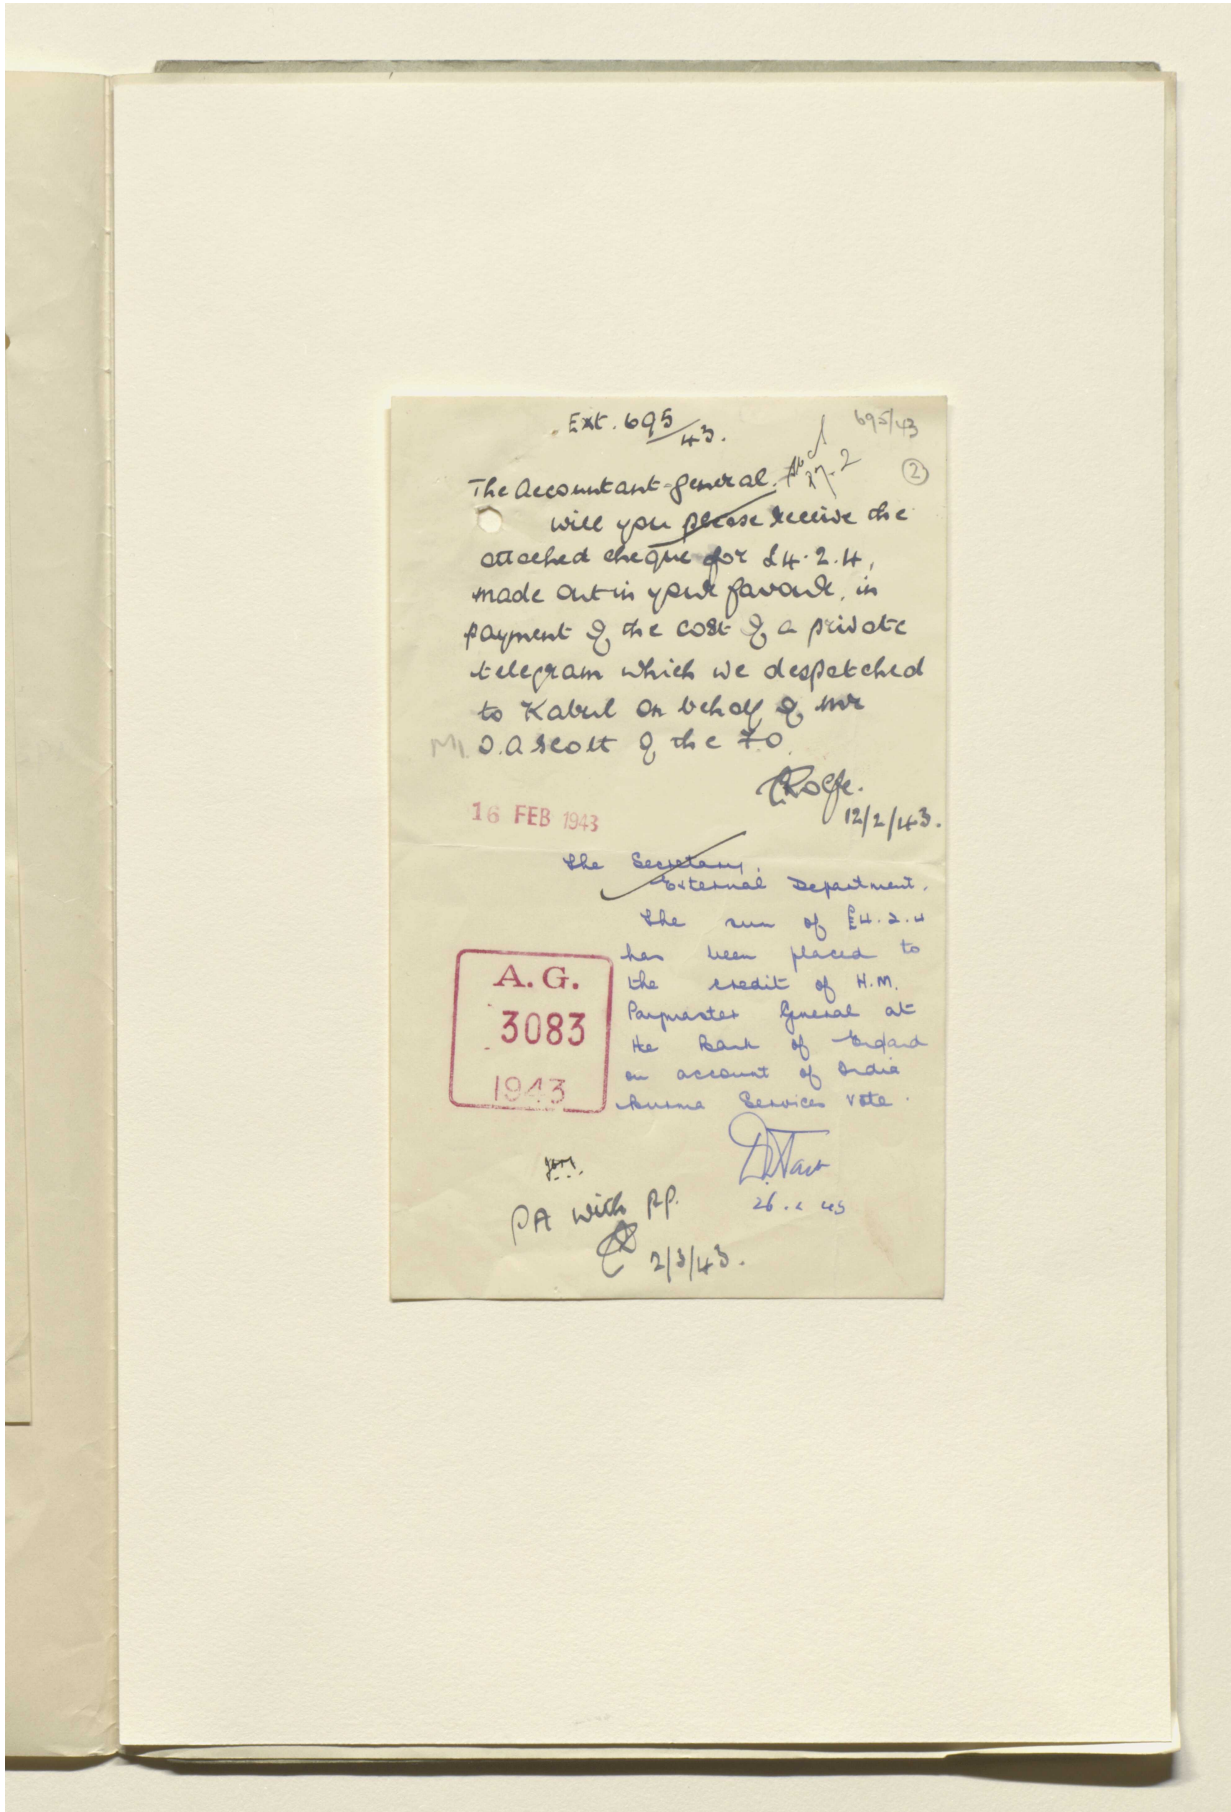 Ext. 695/43.
695/43
27.2
2
The Accountant-General.
will you please receive the
attached cheque for £4.2.4,
made out in your favour, in
payment of the cost of a private
telegram which we despatched
to Kabul on behalf of Mr
D.A Scott of the F.O.
Rolfe.
12/2/43.
16 FEB 1943
The Secretary,
External Department.
The sum of £4.2.4
has been placed to
the credit of H.M.
Paymaster General at
the Bank of England
on account of India
Burma Services Vote.
A.G.
3083
1943
26.2.43
PA with P.P.
2/3/43.